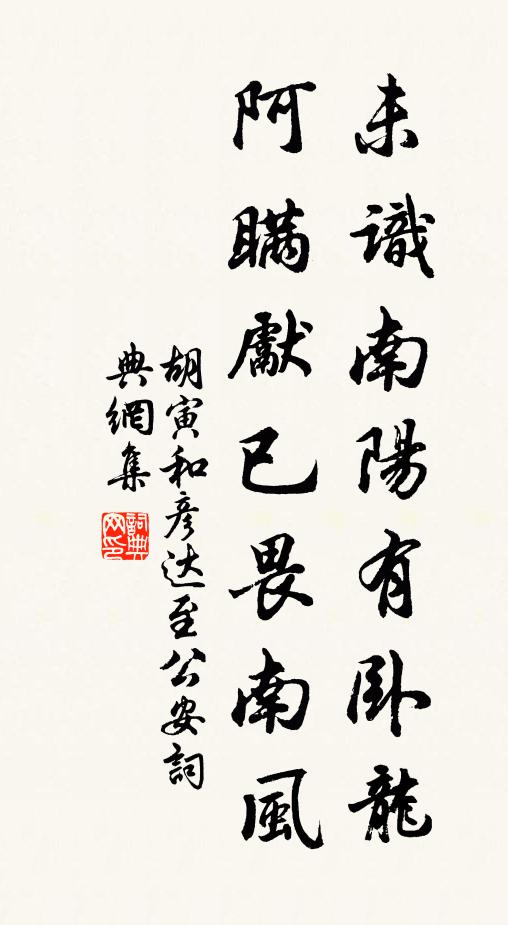 未識南陽有卧龍
阿瞞獻已畏南風
胡寅和彥达至公安詞
典網集
詞典
网印